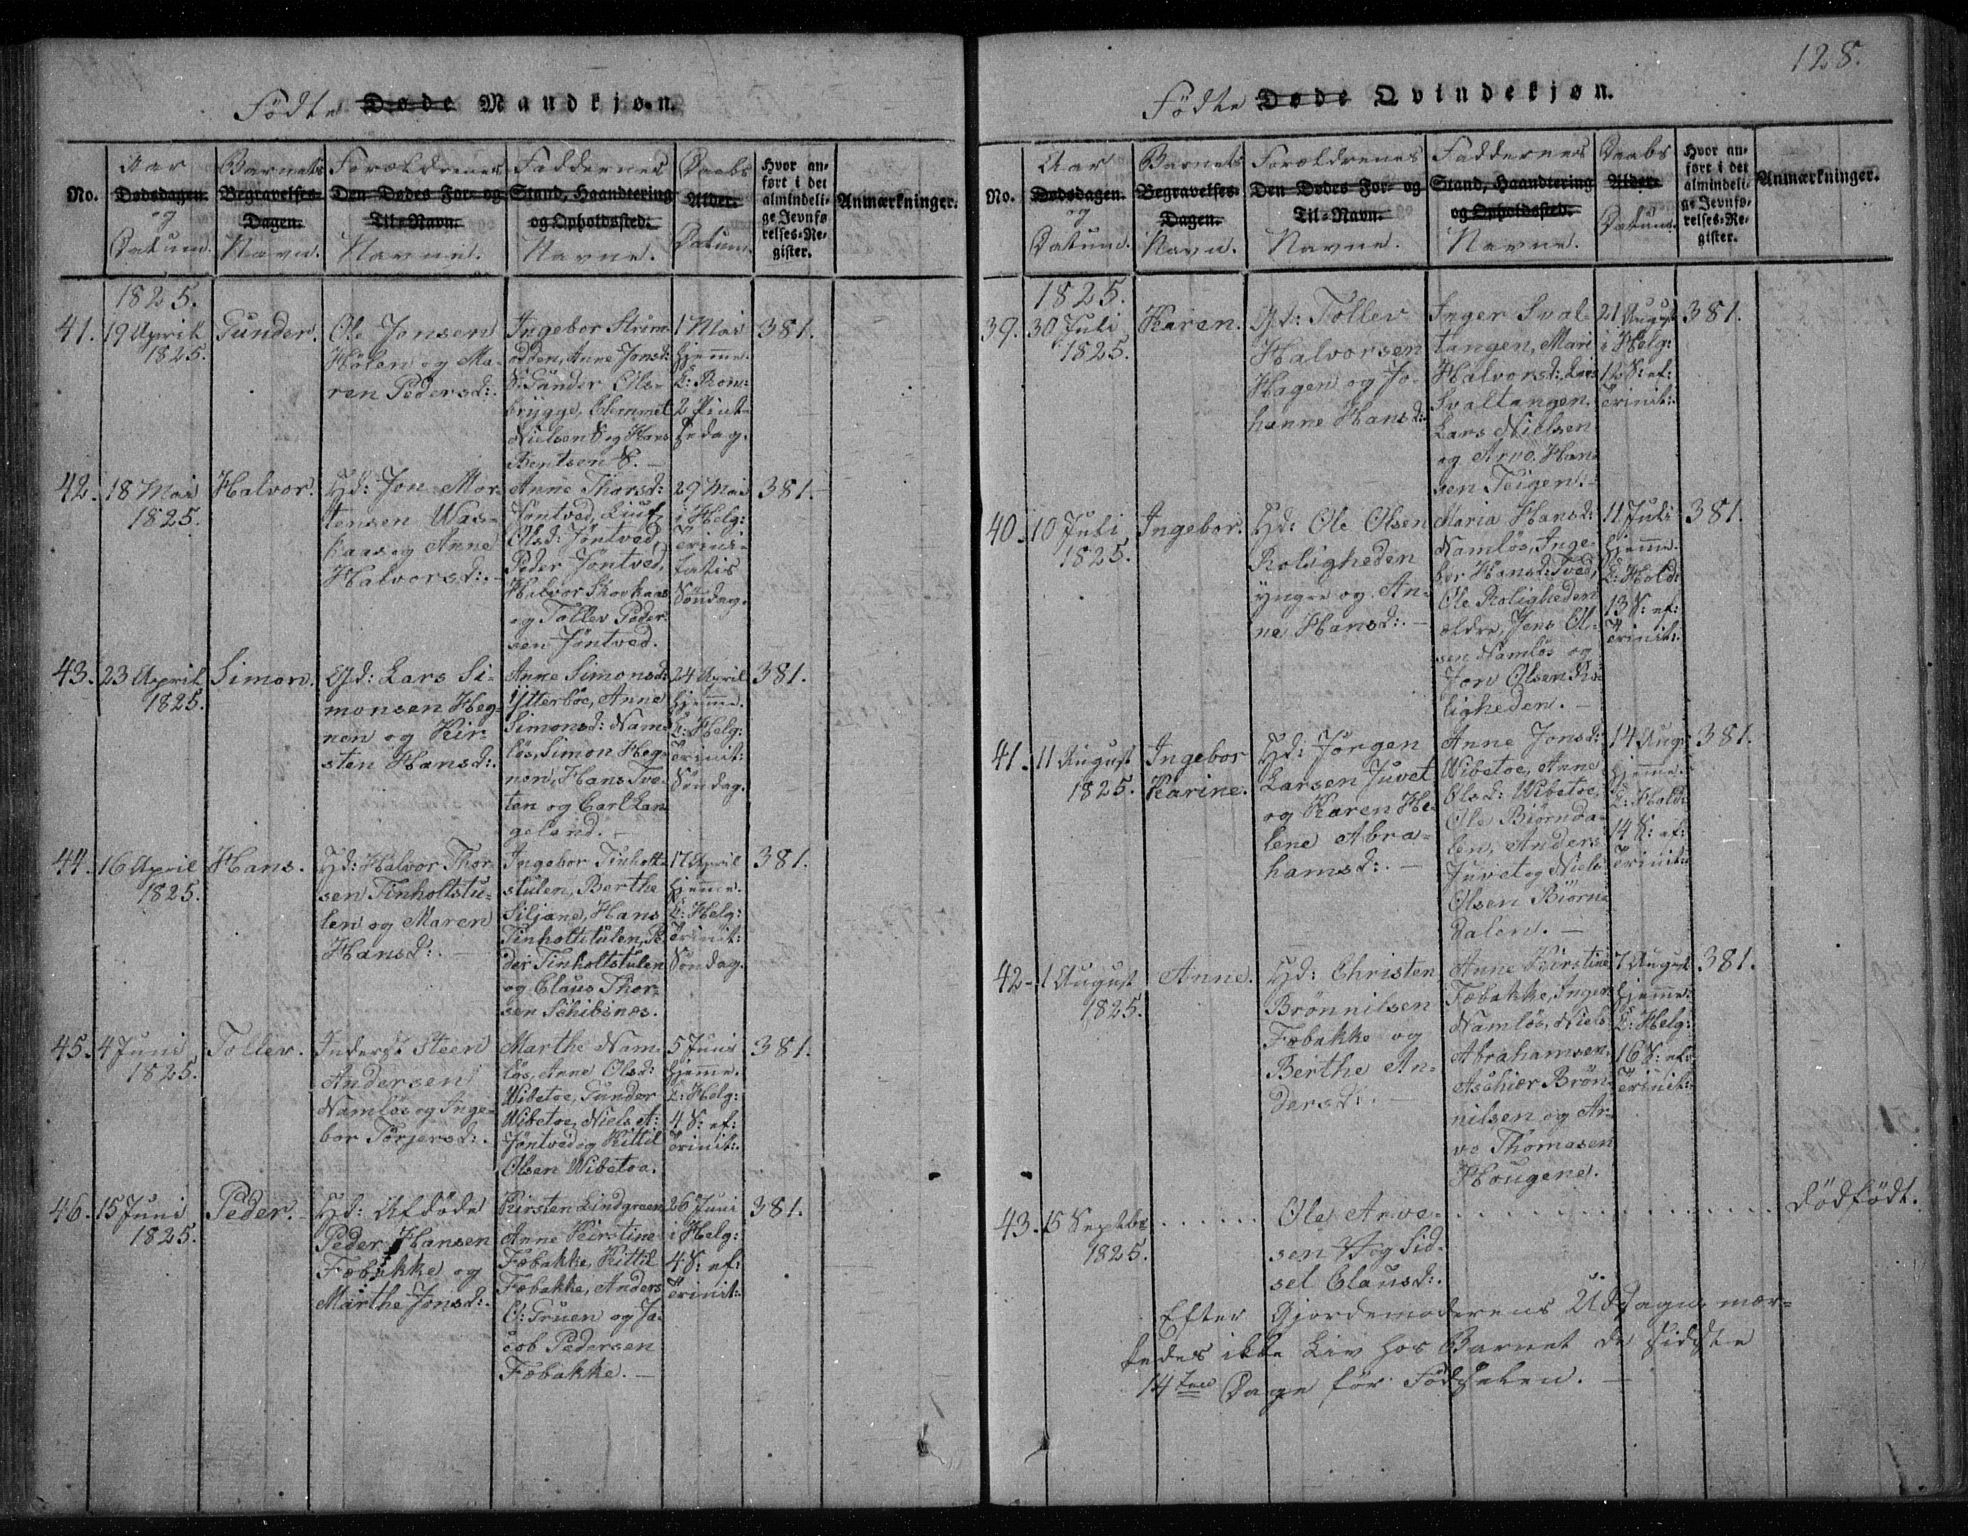 Fødte Døde Mandkjøn.
No.
Aar
Dødsdagen.
og
Datum.
Barnets
Begravelses-
Dagen.
Navn.
Forældrenes
Den Dødes For- og
Til-Navn.
Navne.
Faddernes
Stand, Haandtering
og Opholdssted.
Navne.
Daabs
Alder.
Datum.
Hvor an-
ført i det
almindeli-
ge Jevnfø-
relses-Re-
gister.
Anmærkninger.
1825.
41.
19 April
1825.
Gunder.
Ole Jonsen
Holen og Ma-
ren Pedersd:.
Ingebor Strøm-
odden, Anne Jonsd:
S. Gunder Ols-
brygge, Clemmet
Nielsen S. og Hans
Bentsen S. —
1 Mai
hjemme.
2 Pint-
sedag.
381.
42.
18 Mai
1825.
Halvor.
Hd: Jon Mor-
tensen Was-
haas og Anne
Halvorsd:. —
Anne Thorsd:
Jøntved, Liuf
Olsd: Jøntved,
Peder Jøntved,
Halvor Skovhaas
og Tollev Peder-
sen Jøntved.
29 Mai
i Helg:
Trini-
tatis
Søndag.
381.
43.
23 April
1825.
Simon.
Gd: Lars Si-
monsen Heg-
nen og Kir-
sten Hansd:.
Anne Simonsd:
Ytterbøe, Anne
Simonsd: Nam-
løs, Simon Heg-
nen, Hans Tve-
ten og Carl Lan-
geland. —
24 April
hjemme.
C: Helg:
Trinit:
Søndag.
381.
44.
16 April
1825.
Hans.
Hd: Halvor Thor-
sen Tinholtstu-
len og Maren
Hansd:. —
Ingebor Tinholt-
stulen, Berthe
Siljane, Hans
Tinholtstulen, Pe-
der Tinholtstulen
og Claus Thor-
sen Schibsnæs.
17 April
hjemme.
C: Helg:
Trinit:
Søndag.
381.
45.
4 Juni
1825.
Tollev.
Inderst Steen
Andersen
Namløs og Inge-
bor Torjersd:.
Marthe Nam-
løs, Anne Olsd:
Wibetoe, Gunder
Wibetoe, Niels A:
Jøntved og Kittil
Olsen Wibetoe.
5 Juni
hjemme.
C: Helg:
4 S: ef:
Trinit:
381.
46.
15 Juni
1825.
Peder.
Hd: Afdøde
Peder Hansen
Fæbakke og
Marthe Jonsd:.
Kirsten Lindgreen,
Anne Kirstine
Fæbakke, Kittil
Fæbakke, Anders
O: Gruen og Ja-
cob Pedersen
Fæbakke. —
26 Juni
i Helg:
4 S: ef:
Trinit:
381.
128.
Fødte Døde Qvindekjøn.
No.
Aar
Dødsdagen.
og
Datum.
Barnets
Begravelses-
Dagen.
Navn.
Forældrenes
Den Dødes For- og
Til-Navn.
Navne.
Faddernes
Stand, Haandtering
og Opholdssted.
Navne.
Daabs
Alder.
Datum.
Hvor an-
ført i det
almindeli-
ge Jevnfø-
relses-Re-
gister.
Anmærkninger.
1825.
39.
30 Juli
1825.
Karen.
Gd: Tollev
Halvorsen
Hagen og Jo-
hanne Hansd:
Inger Sval-
tangen, Mari
Halvorsd: Lars
Svaltangen,
Lars Nielsen
og Arvo Han-
sen Teigen:
21 August
i Helg:
12 S: ef:
Trinit:
381.
40.
10 Juli
1825.
Ingebor.
Hd: Ole Olsen
Roligheden
yngre og An-
ne Hansd:. —
Maria Hansd:
Namløs, Inge-
bor Hansd: Tved,
Ole Roligheden
ældre, Jens Ol-
sen Namløs og
Jon Olsen Ro-
ligheden. —
11 Juli
hjemme.
C: Hold:
13 S: ef:
Trinit:.
381.
41.
11 August
1825.
Ingebor
Karine.
Hd: Jørgen
Larsen Juvet
og Karen He-
lene Abra-
hamsd:. —
Anne Jonsd:
Wibetoe, Anne
Olsd: Wibetoe,
Ole Biørnda-
len, Anders
Juvet og Niels
Olsen Biørn-
dalen. —
14 Aug:
hjemme.
C: Hold:
14 S: ef:
Trinit:
381.
42.
1 August
1825.
Anne.
Hd: Christen
Brønnilsen
Fæbakke og
Berthe An-
dersd:. —
Anne Kirstine
Fæbakke, Inger
Namløs, Niels
Abrahamsen,
Aschier Brøn-
nilsen og Ar-
vo Thomasen
Hougene.
7 August
hjemme.
C: Helg:
16 S: ef:
Trinit:
381.
43.
15 Septbr
1825.
Ole Arve-
sen H og Sid-
sel Clausd:.
dødfødt.
Efter Gjordemoderens Udsagn mær-
kedes ikke Liv hos Barnet de sidste
14ten Dage før Fødselen. —